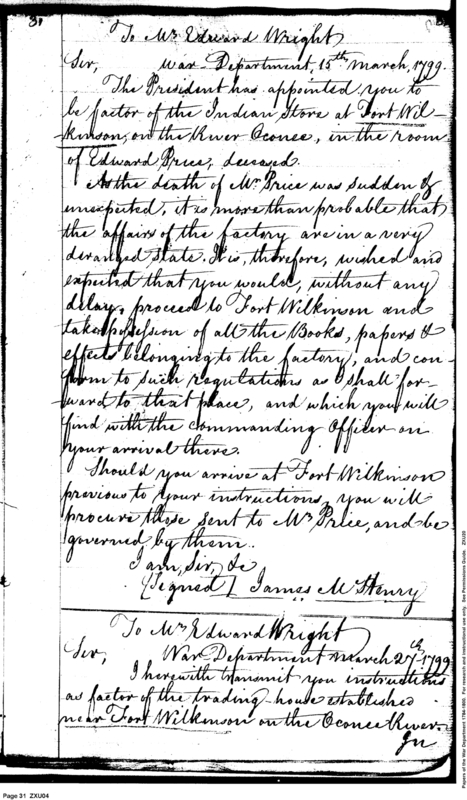 31
To Mr Edward Wright
Sir, War Department, 15th March, 1799.
The President has appointed you to
be factor of the Indian Store at Fort Wil-
kinson, on the River Oconee, in the room
of Edward Price, deceased.
As the death of Mr Price was sudden &
unexpected, it is more than probable that
the affairs of the factory are in a very
deranged state. It is, therefore, wished and
expected that you would, without any
delay, proceed to Fort Wilkinson and
take possession of all the Books, papers &
effects belonging to the factory, and con-
form to such regulations as I shall for-
ward to that place, and which you will
find with the Commanding Officer on
your arrival there.
Should you arrive at Fort Wilkinson
previous to your instructions, you will
procure those sent to Mr Price, and be
governed by them.
I am, Sir, &c
(Signed) James McHenry
To Mr Edward Wright
Sir, War Department March 27th 1799
I herewith transmit you instructions
as factor of the trading-house established
near Fort Wilkinson on the Oconee River.
In
Page 31 ZXU04
Papers of the War Department 1784-1800. For research and instructional use only. See Permissions Guide. ZXU20